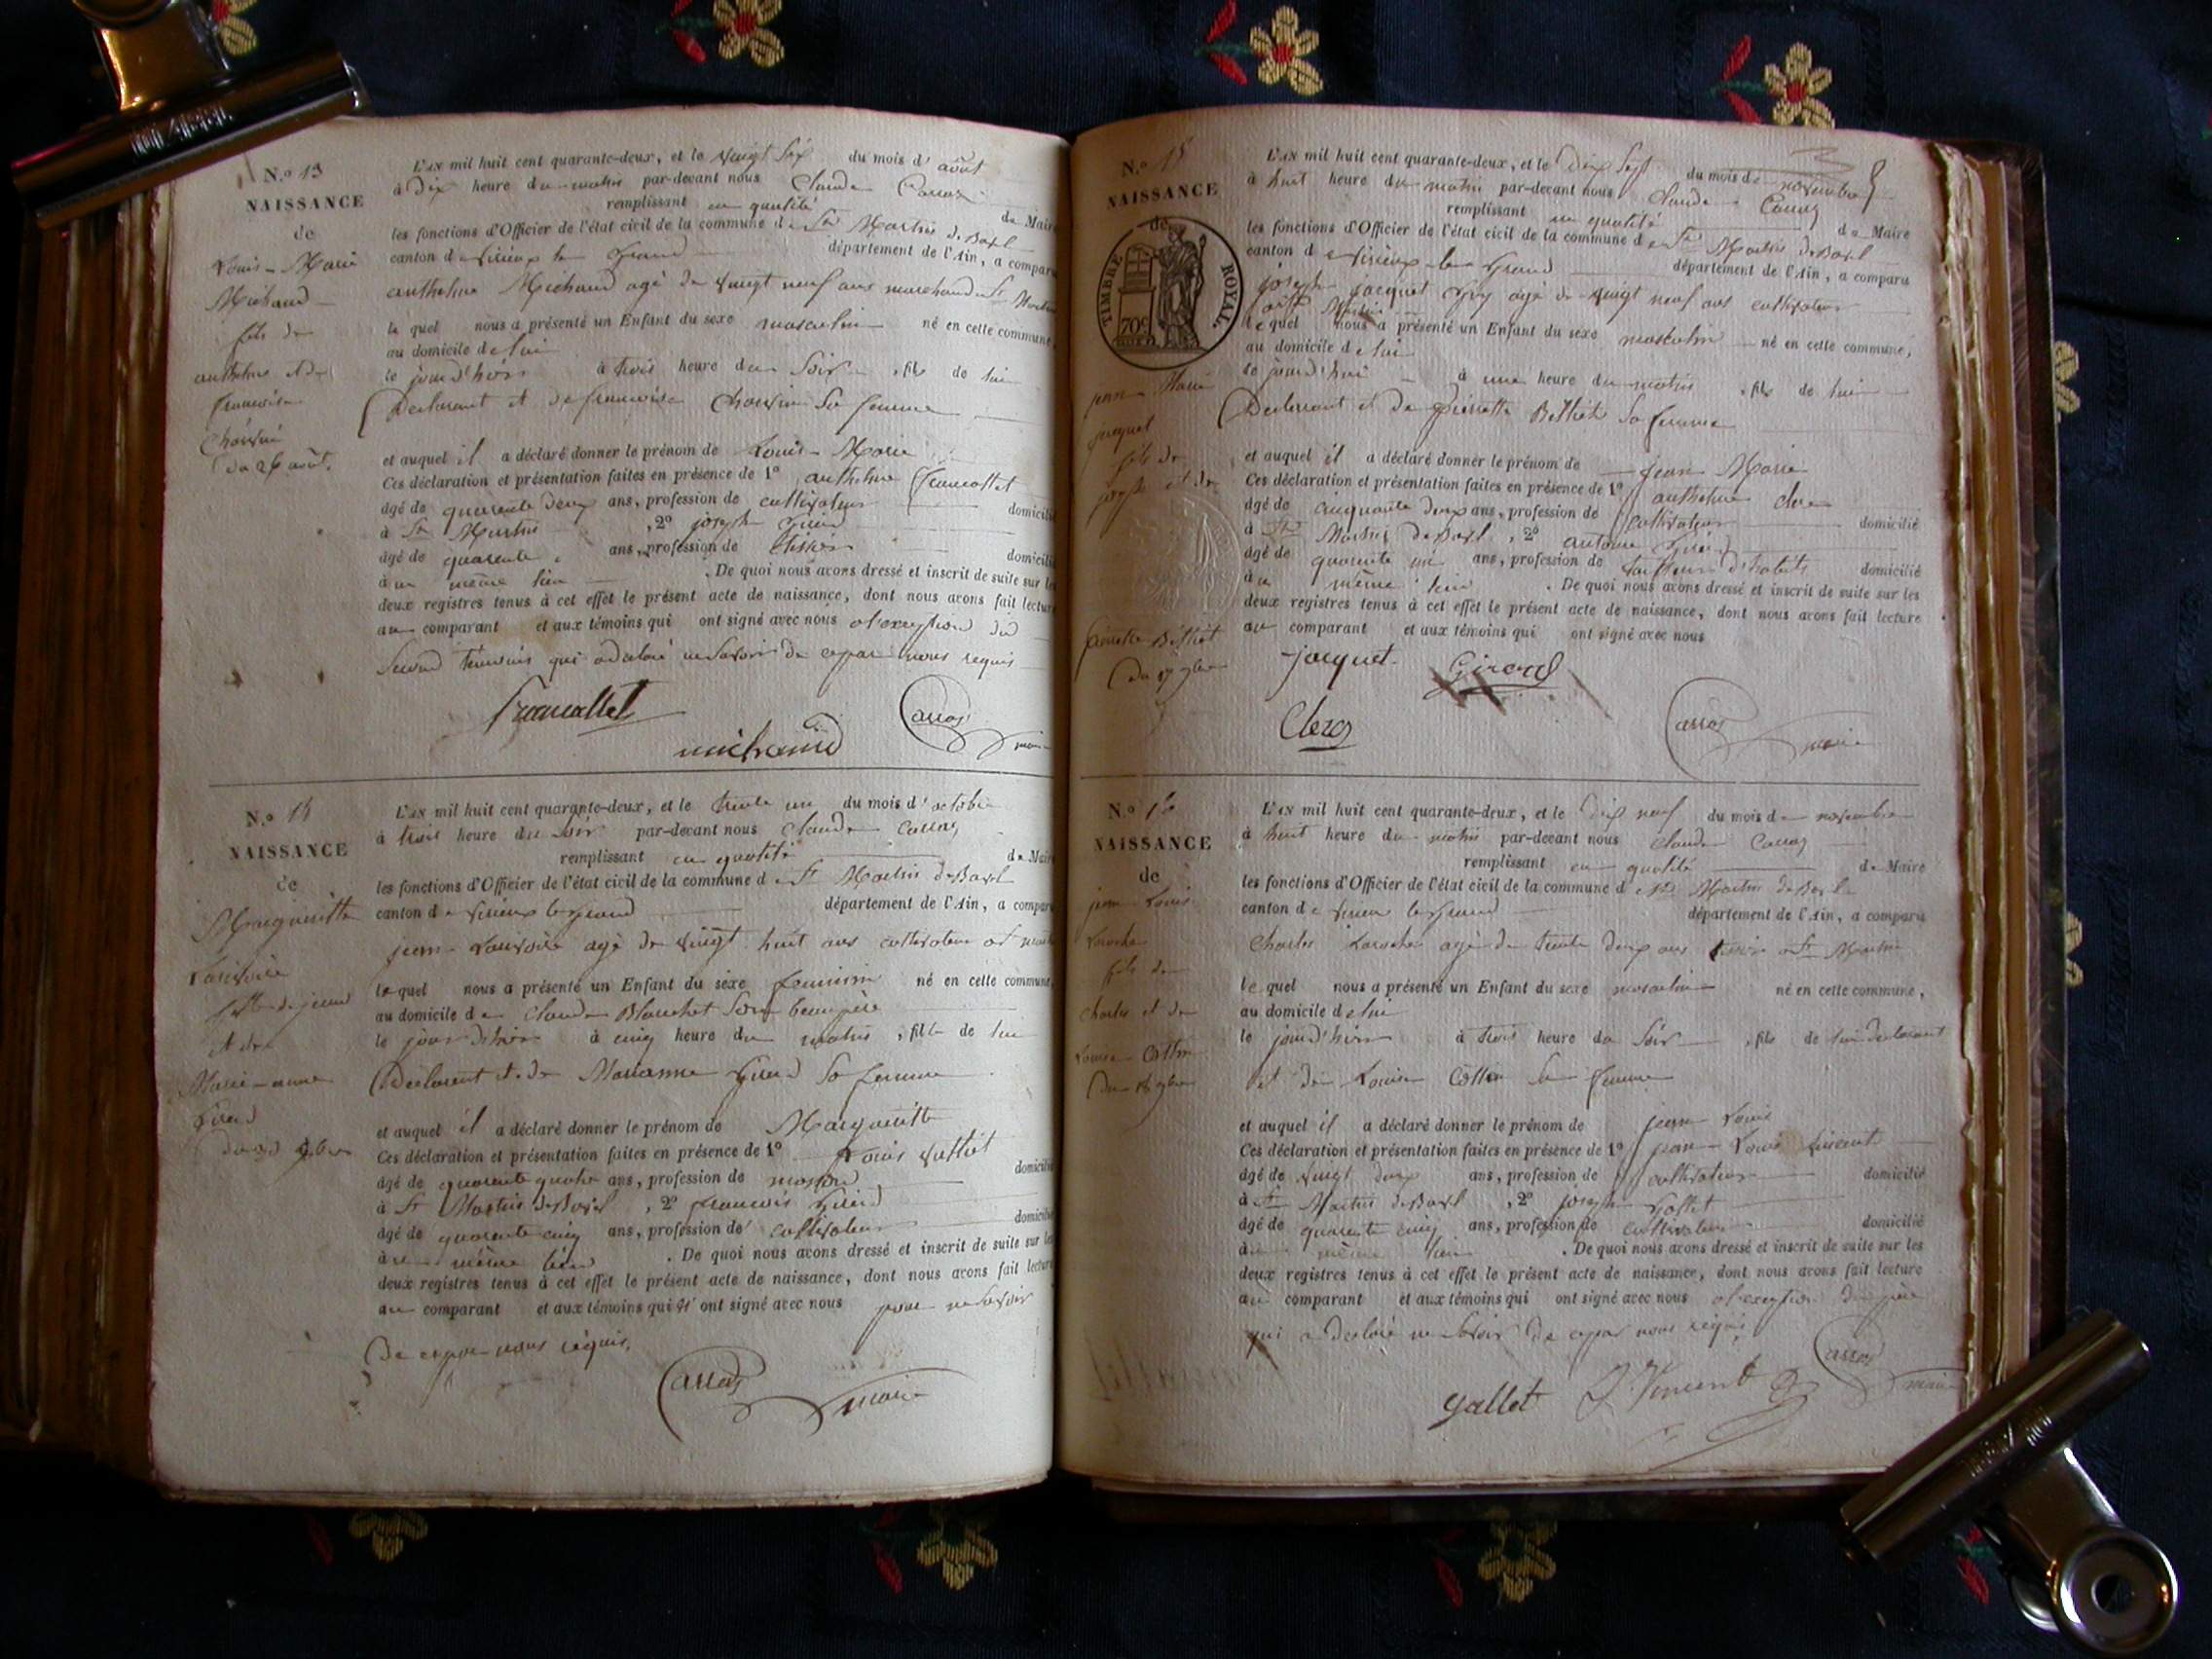 N.o 13
NAISSANCE
de
Louis-Marie
Michaud
fils de
anthelme et de
francoise
du 26 août.
L'AN mil huit cent quarante-deux, et le vingt six du mois d'août
à Dix heure du matin par-devant nous Claude Carraz
remplissant en qualité de Maire
les fonctions d'Officier de l'état civil de la commune de St Martin de Bavel
canton de virieux le grand département de l'Ain, a comparu
anthelme Michaud agé de vingt neuf ans marchand St Martin
le quel nous a présenté un Enfant du sexe masculin né en cette commune,
au domicile de lui
le jour d'hier à trois heure du soir, fils de lui
Declarant et de francoise sa femme
et auquel il a déclaré donner le prénom de Louis-Marie
Ces déclaration et présentation faites en présence de 1o anthelme francallet
âgé de quarente deux ans, profession de cultivateur domicilié
à St Martin, 2o joseph
âgé de quarente ans, profession de domicilié
au même lieu. De quoi nous avons dressé et inscrit de suite sur les
deux registres tenus à cet effet le présent acte de naissance, dont nous avons fait lecture
au comparant et aux témoins qui ont signé avec nous a l'exception du
second témoins qui a declaré ne savoir de ce par nous requis
francallet
michaud
Carraz maire
N.o 14
NAISSANCE
de
Margueritte
fille de jean
et de
Marie-anne
L'AN mil huit cent quarante-deux, et le trente un du mois d'octobre
à trois heure du soir par-devant nous Claude Carraz
remplissant en qualité de Maire
les fonctions d'Officier de l'état civil de la commune de St Martin de Bavel
canton de virieux le grand département de l'Ain, a comparu
jean agé de vingt huit ans cultivateur
le quel nous a présenté un Enfant du sexe feminin né en cette commune,
au domicile de Claude Blanchet son beau père
le jour d'hier à cinq heure du matin, fille de lui
Declarant et de Marianne sa femme
et auquel il a déclaré donner le prénom de Margueritte
Ces déclaration et présentation faites en présence de 1o Louis
âgé de quarente quatre ans, profession de domicilié
à St Martin de Bavel, 2o francois
âgé de quarente cinq ans, profession de cultivateur domicilié
au même lieu. De quoi nous avons dressé et inscrit de suite sur les
deux registres tenus à cet effet le présent acte de naissance, dont nous avons fait lecture
au comparant et aux témoins qui ont signé avec nous pour ne savoir
De ce par nous requis,
Carraz maire
N.o 15
NAISSANCE
de
TIMBRE ROYAL.
70c
jean Marie
jacquet
fils de
joseph et de
pierrette Béthiet
du 17 9bre
L'AN mil huit cent quarante-deux, et le Dix Sept du mois de novembre
à huit heure du matin par-devant nous Claude Carraz
remplissant en qualité de Maire
les fonctions d'Officier de l'état civil de la commune de St Martin de Bavel
canton de virieux-le-grand département de l'Ain, a comparu
joseph jacquet agé de vingt neuf ans cultivateur
le quel nous a présenté un Enfant du sexe masculin né en cette commune,
au domicile de lui
le jourd'hui à une heure du matin, fils de lui
Declarant et de pierrette Béthiet sa femme
et auquel il a déclaré donner le prénom de jean Marie
Ces déclaration et présentation faites en présence de 1o anthelme clerc
âgé de cinquante deux ans, profession de cultivateur domicilié
à St Martin de Bavel, 2o antoine
âgé de quarente un ans, profession de tailleur d'habits domicilié
au même lieu. De quoi nous avons dressé et inscrit de suite sur les
deux registres tenus à cet effet le présent acte de naissance, dont nous avons fait lecture
au comparant et aux témoins qui ont signé avec nous
jacquet
Clerc
Carraz maire
N.o 16
NAISSANCE
de
jean Louis
Larocher
fils de
charles et de
Louise
L'AN mil huit cent quarante-deux, et le dix neuf du mois de novembre
à huit heure du matin par-devant nous Claude Carraz
remplissant en qualité de Maire
les fonctions d'Officier de l'état civil de la commune de St Martin de Bavel
canton de virieu le grand département de l'Ain, a comparu
Charles Larocher agé de trente deux ans St Martin
le quel nous a présenté un Enfant du sexe masculin né en cette commune,
au domicile de lui
le jour d'hier à trois heure du soir, fils de lui declarant
et de Louise sa femme
et auquel il a déclaré donner le prénom de jean Louis
Ces déclaration et présentation faites en présence de 1o jean Louis vincent
âgé de vingt deux ans, profession de cultivateur domicilié
à St Martin de Bavel, 2o joseph gallet
âgé de quarente cinq ans, profession de cultivateur domicilié
au même lieu. De quoi nous avons dressé et inscrit de suite sur les
deux registres tenus à cet effet le présent acte de naissance, dont nous avons fait lecture
au comparant et aux témoins qui ont signé avec nous a l'exception du père
qui a declaré ne savoir de ce par nous requis
Carraz maire
gallet Vincent